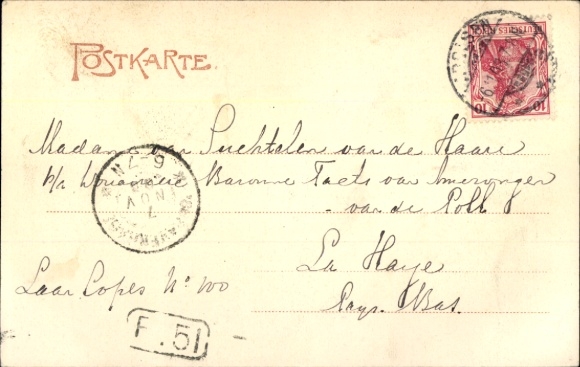 POSTKARTE.
DEUTSCHES REICH
10 10
Madame van Tuchtelen van de Haare
Baronne Taets van Amerongen
van de Poll
La Haye
Pays-Bas.
Laan Copes No 100
6-7 N
NOV
7
F. 51